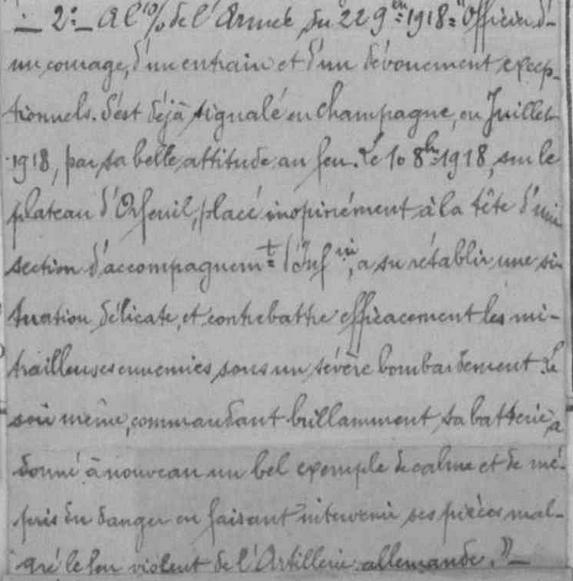 - 2º - A l'o/ de l'Armée du 22 9bre 1918 = "Officier d'-
un courage, d'un entrain et d'un dévouement excep-
tionnels. S'est déjà signalé en Champagne, en Juillet
1918, par sa belle attitude au feu. Le 10 8bre 1918, sur le
plateau d'Orfeuil, placé inopinément à la tête d'une
section d'accompagnemt d'Infrie, a su rétablir une si-
tuation délicate, et contrebattre efficacement les mi-
trailleuses ennemies sous un sévère bombardement. Le
soir même, commandant brillamment sa batterie, a
donné à nouveau un bel exemple de calme et de mé-
pris du danger en faisant intervenir ses pièces mal-
gré le feu violent de l'Artillerie allemande." -